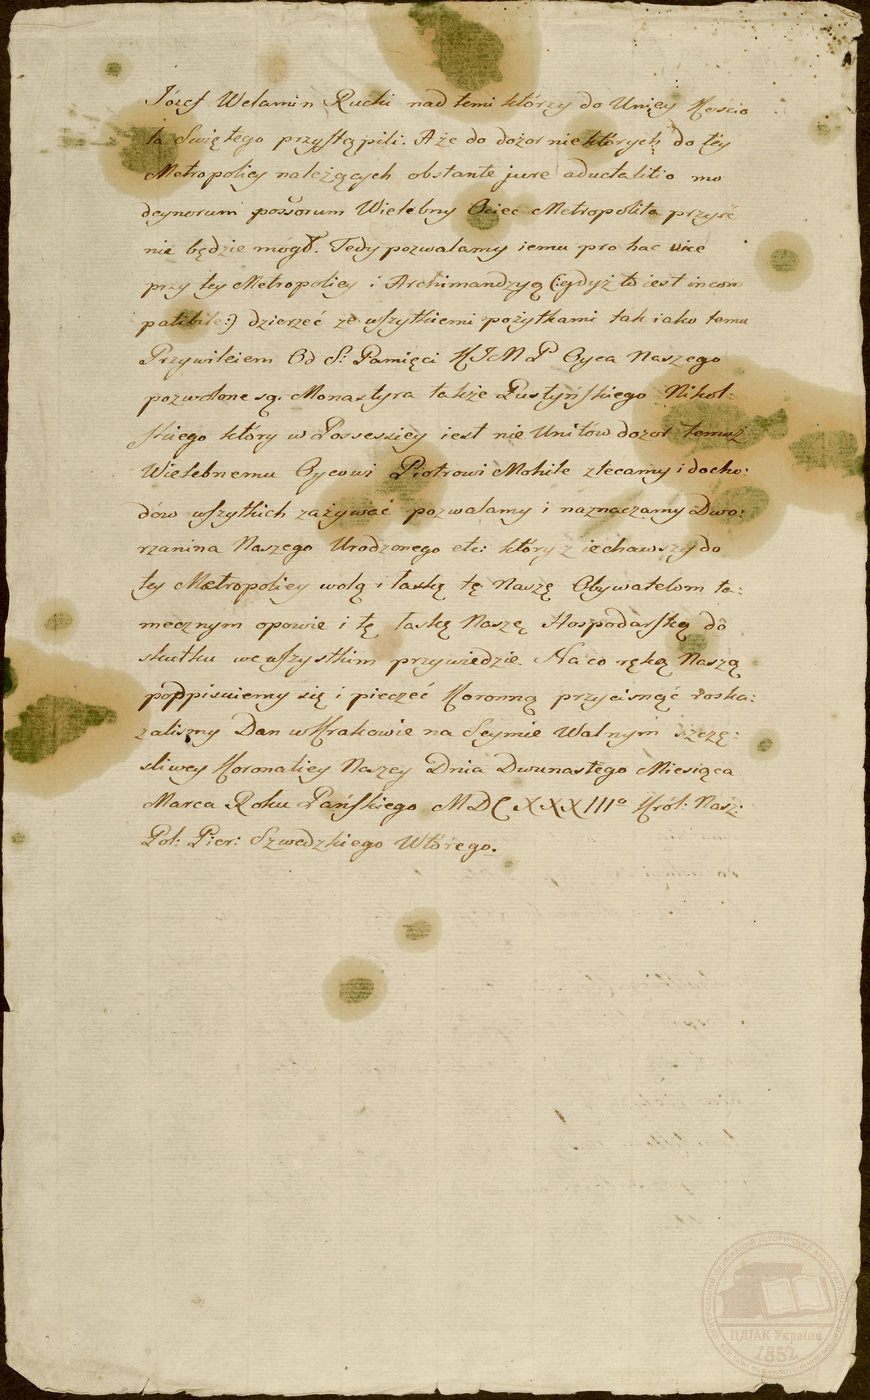 Józef Welamin Rucki nad temi którzy do Uniey Kościo
ła Swiętego przystąpili. A że do dożor niektórych do tey
Metropoliey należących obstante jure advitalitio mo
dernorum possorum Wielebny Ociec Metropolita przyść
nie będzie mogł. Tedy pozwalamy iemu pro hac vice
przy tey Metropoliey i Archimandryą (:gdyż to iest incom
patibile:) dzierzeć ze wszytkiemi pożytkami tak iako temu
Przywileiem Od S: Pamięci K J M P Oyca Naszego
pozwolone są. Monastyra także Pustyńskiego Nikol:
skiego który w Possessiey iest nie Unitów dozor temuż
Wielebnemu Oycowi Piotrowi Mohile zlecamy i docho:
dów wszytkich zażywać pozwalamy i naznaczamy Dwo:
rzanina Naszego Urodzonego etc: który ziechawszy do
tey Metropoliey wolą i łaskę tę Naszę Obywatelom ta:
mecznym opowie i tę łaskę Naszę Hospodarską do
skutku we wszystkim przywiedzie. Na co ręką Naszą
podpisuiemy się i pieczęć Koronną przycisnąć roska:
zalismy Dan w Krakowie na Seymie Walnym szczę:
sliwey Koronatiey Naszey Dnia Dwunastego Miesiąca
Marca Roku Pańskiego MDCXXXIIIº Król: Nasz:
Pol: Pier: Szwedzkiego Wtórego.
ЦДІАК України
1852